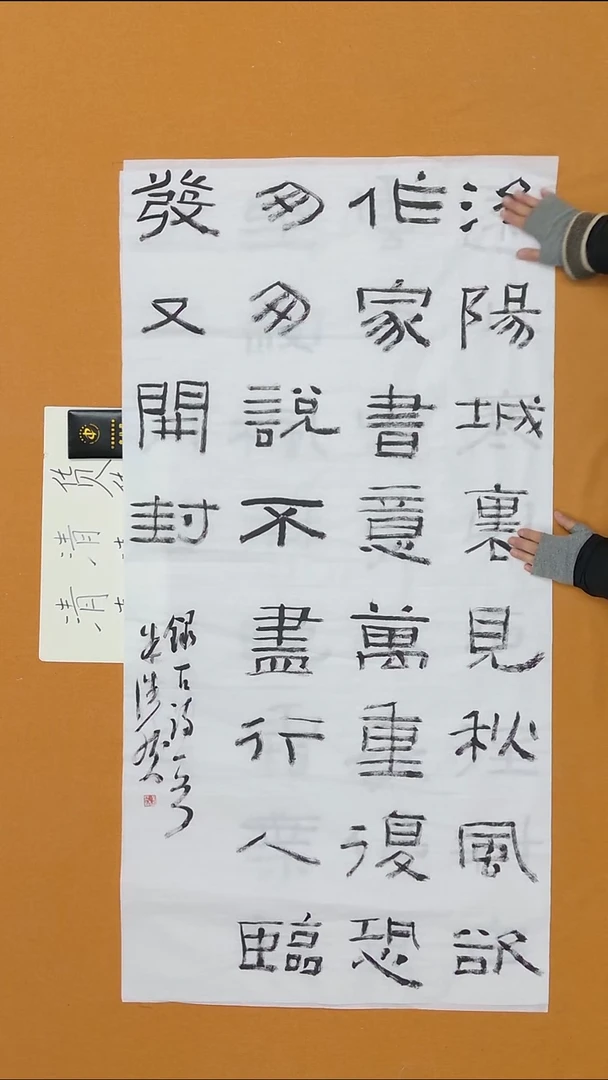 洛陽城裏見秋風欲
作家書意萬重復恐
匆匆說不盡行人臨
發又開封
錄古詩一首
货清清